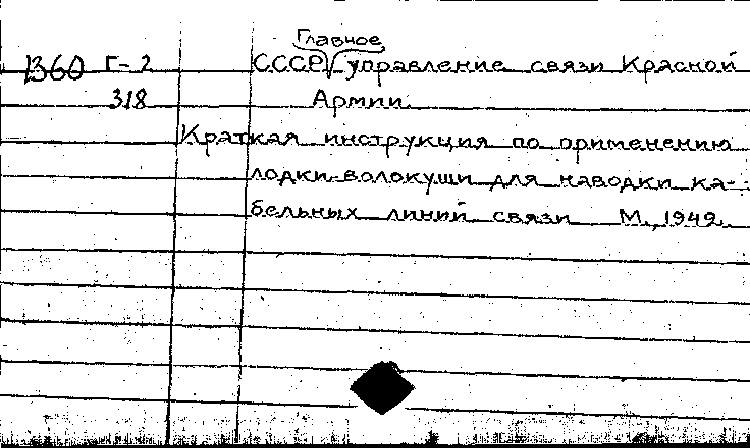 Главное
1360 Г-2 СССР управление связи Красной
318 Армии.
Краткая инструкция по применению
лодки-волокуши для наводки ка-
бельных линий связи М., 1942.